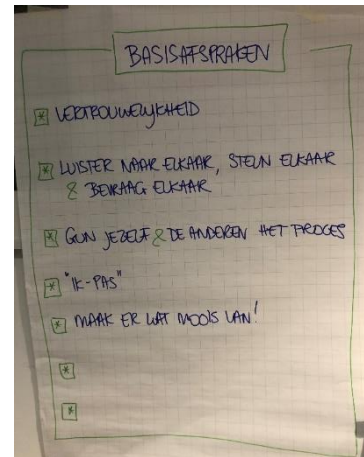 BASISAFSPRAKEN
* VERTROUWELIJKHEID
* LUISTER NAAR ELKAAR, STEUN ELKAAR
& BEVRAAG ELKAAR
* GUN JEZELF & DE ANDEREN HET PROCES
* "IK-PAS"
* MAAK ER WAT MOOIS VAN!
*
*